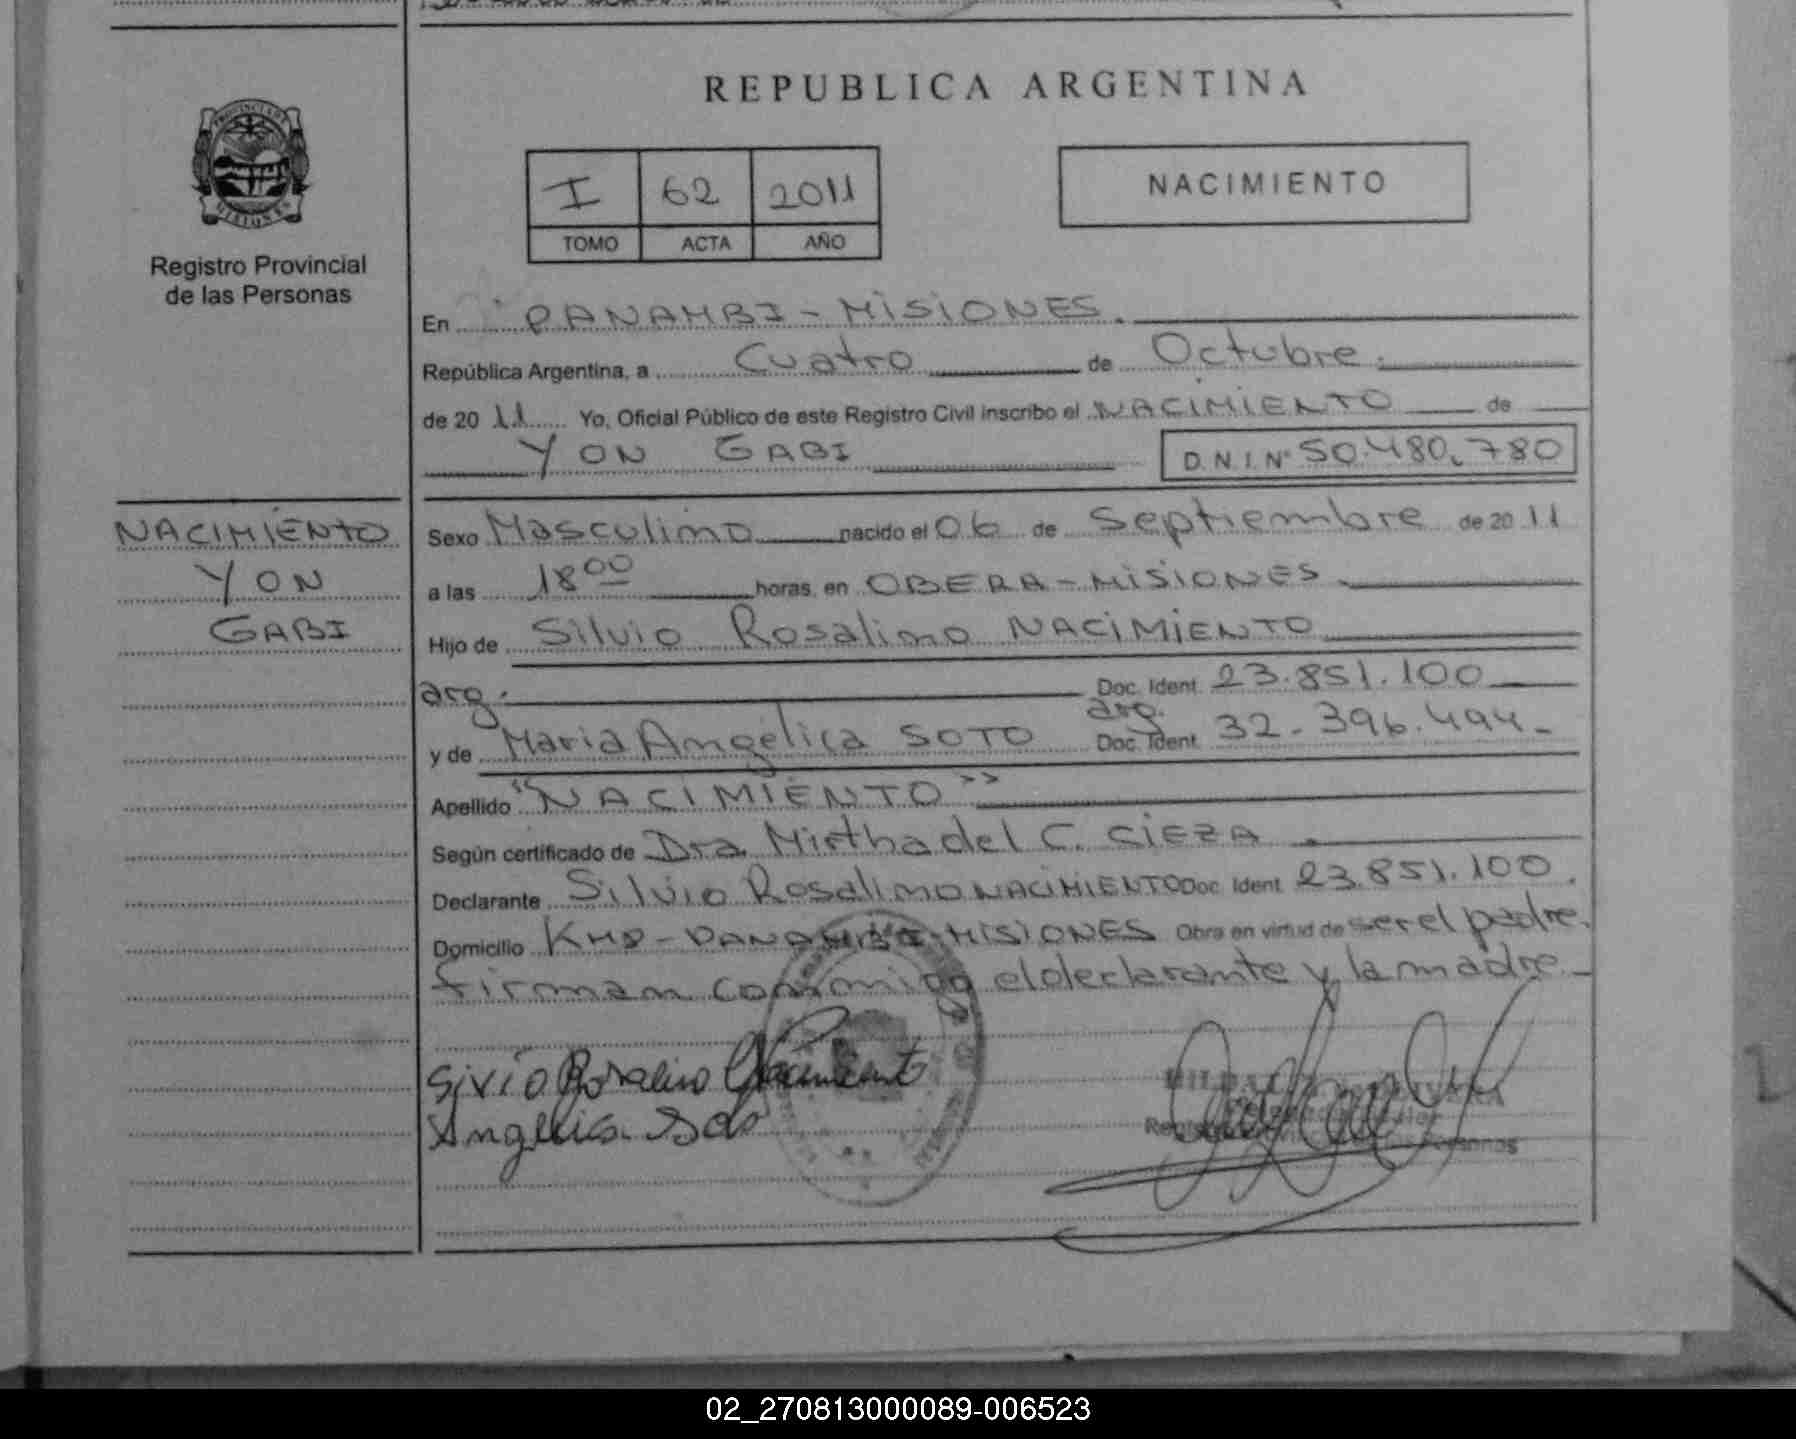 REPUBLICA ARGENTINA
I 62 2011
TOMO ACTA AÑO
NACIMIENTO
Registro Provincial
de las Personas
En PANAMBI - MISIONES.
República Argentina, a Cuatro de Octubre.
de 2011 Yo, Oficial Público de este Registro Civil inscribo el NACIMIENTO de
YON GABI D.N.I. Nº 50.480.780
NACIMIENTO
YON
GABI
Sexo Masculino nacido el 06 de Septiembre de 2011
a las 18 00 horas, en OBERA - MISIONES.
Hijo de Silvio Rosalino NACIMIENTO
arg. Doc. Ident. 23.851.100
y de Maria Angélica SOTO arg. Doc. Ident. 32.396.494-
Apellido "NACIMIENTO"
Según certificado de Dra. Mirtha del C. CIEZA.
Declarante Silvio Rosalino NACIMIENTO Doc. Ident. 23.851.100.
Domicilio KM8 - PANAMBI - MISIONES Obra en virtud de ser el padre.
firman conmigo el declarante y la madre.-
Sivio Rosalino Nacimiento
Angelica Soto
02_270813000089-006523